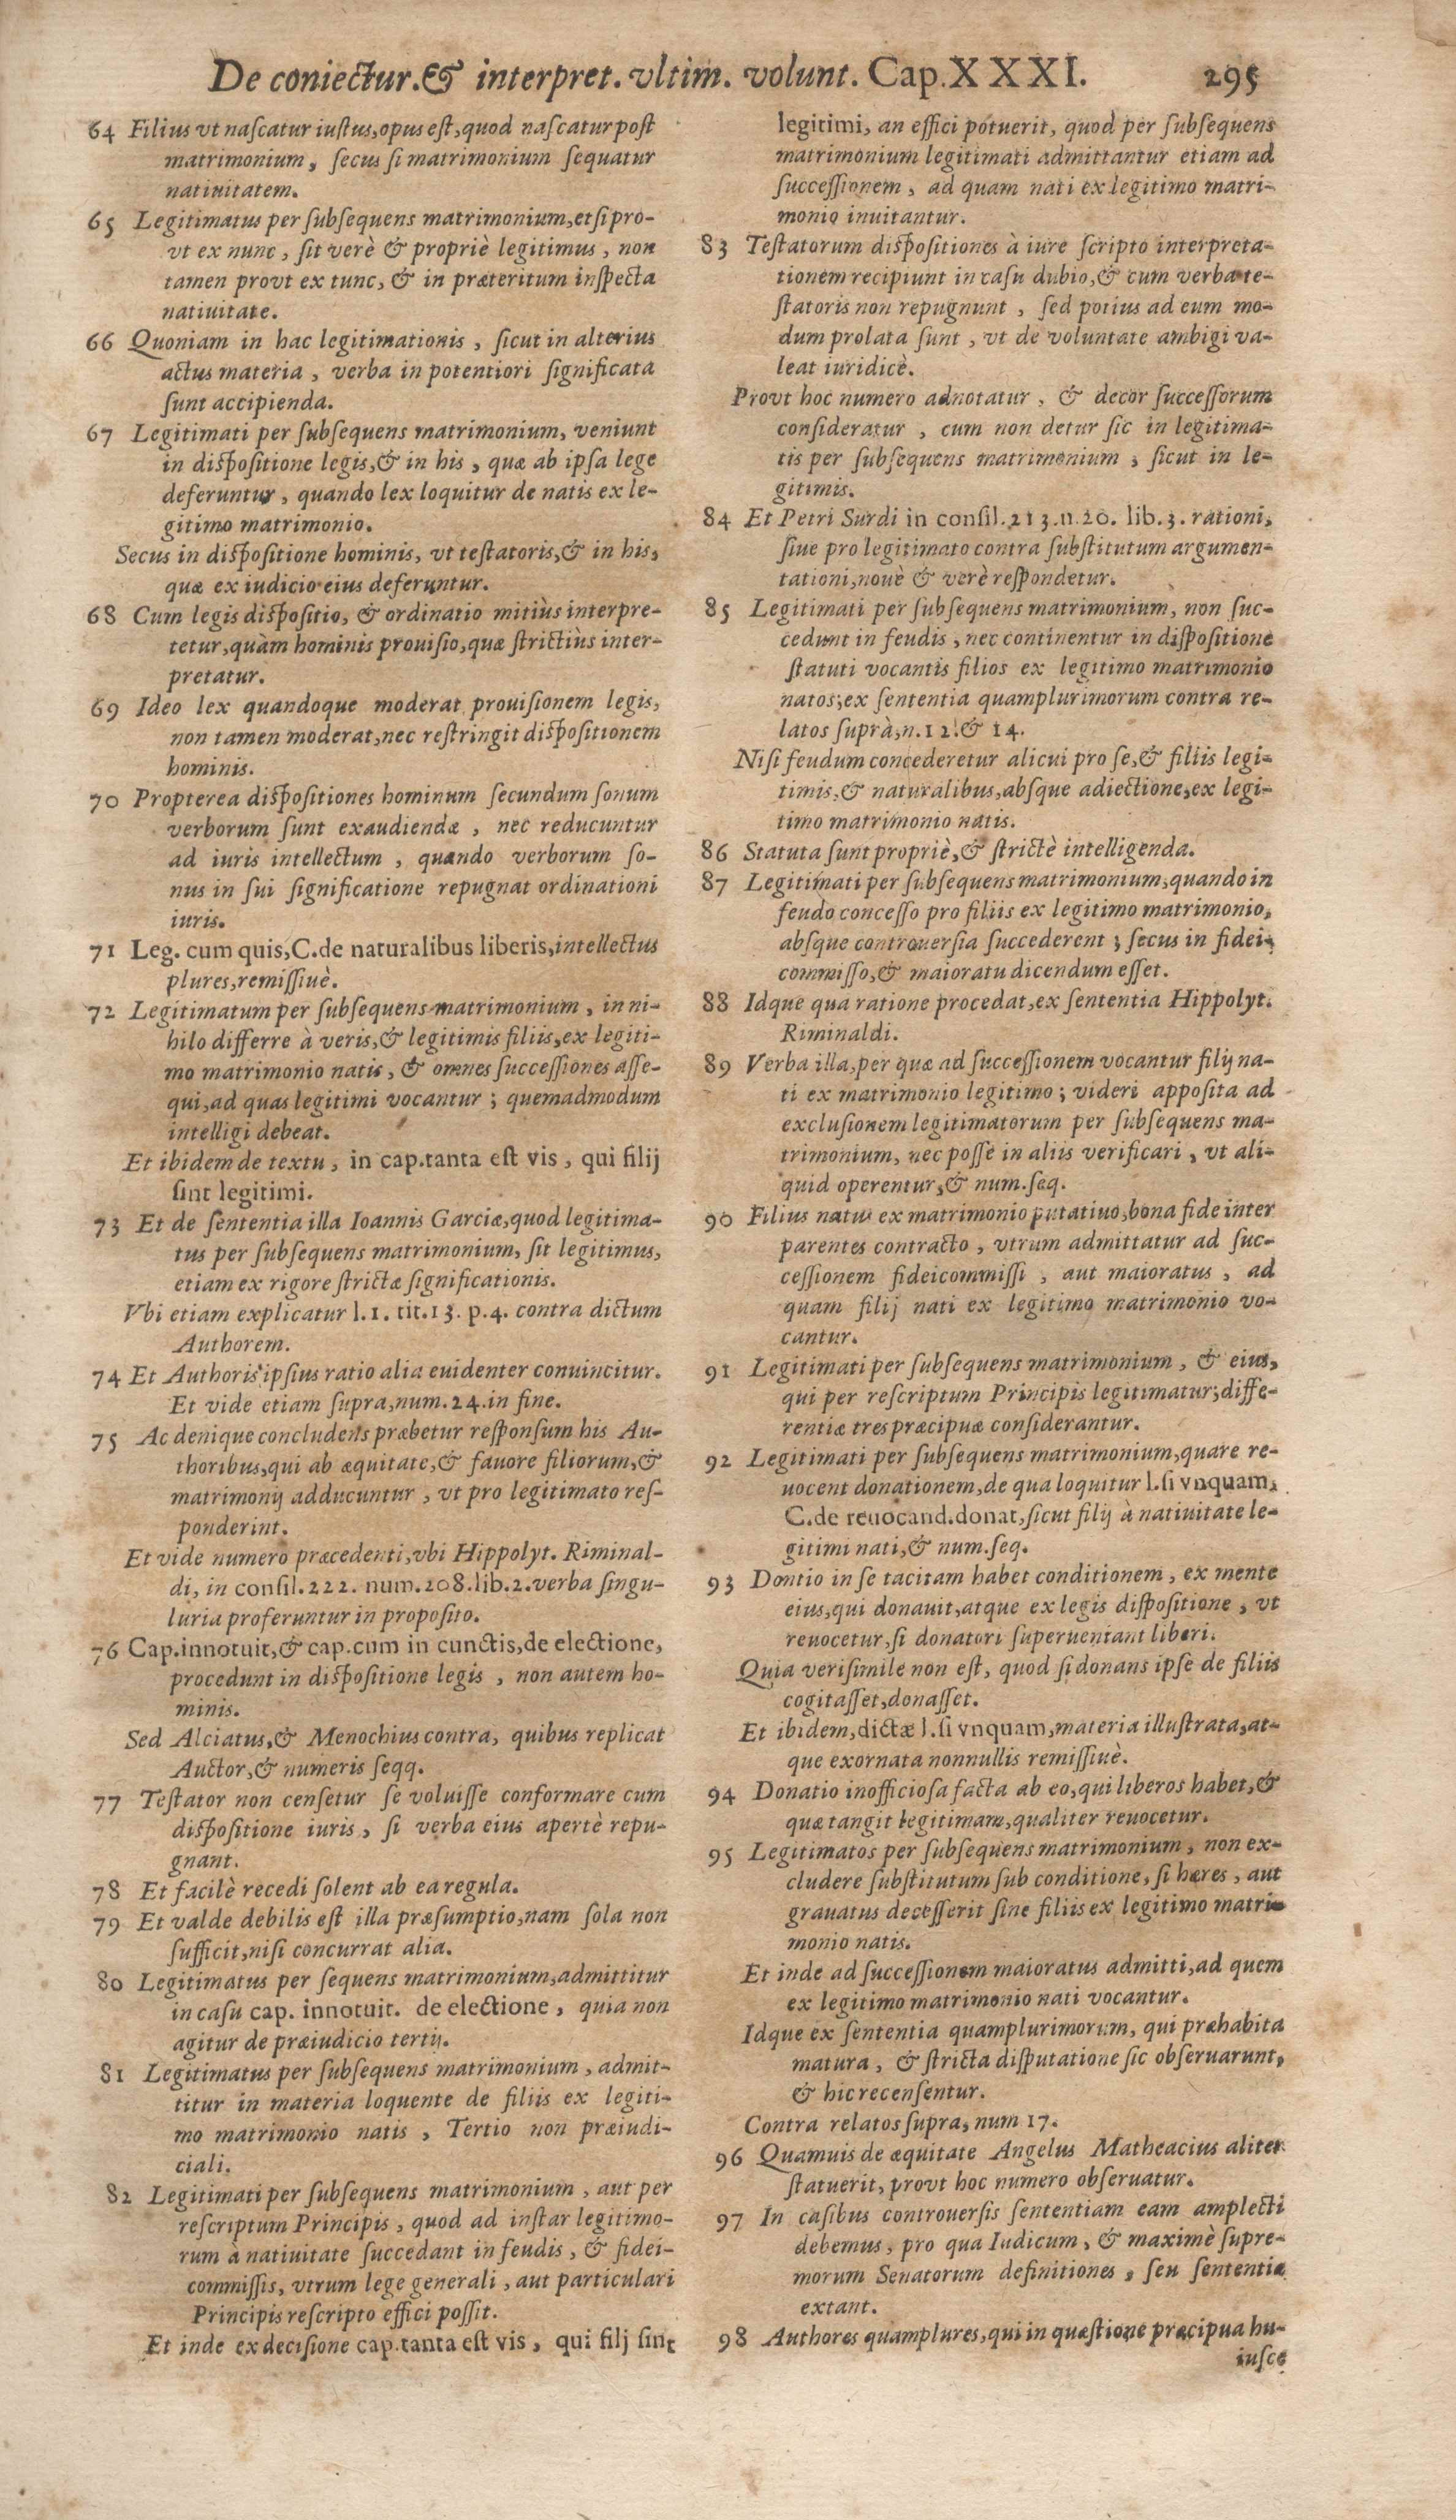 De coniectur. & interpret. vltim. volunt. Cap. XXXI. 295
64 Filius vt naſcatur iuſtus, opus eſt, quod naſcatur poſt
matrimonium, ſecus ſi matrimonium ſequatur
natiuitatem.
65 Legitimatus per ſubſequens matrimonium, et ſi pro-
vt ex nunc, ſit verè & propriè legitimus, non
tamen provt ex tunc, & in præteritum inſpecta
natiuitate.
66 Quoniam in hac legitimationis, ſicut in alterius
actus materia, verba in potentiori ſignificata
ſunt accipienda.
67 Legitimati per ſubſequens matrimonium, veniunt
in diſpoſitione legis, & in his, quæ ab ipſa lege
deferuntur, quando lex loquitur de natis ex le-
gitimo matrimonio.
Secus in diſpoſitione hominis, vt teſtatoris, & in his,
quæ ex iudicio eius deferuntur.
68 Cum legis diſpoſitio, & ordinatio mitiùs interpre-
tetur, quàm hominis prouiſio, quæ ſtrictiùs inter-
pretatur.
69 Ideo lex quandoque moderat prouiſionem legis,
non tamen moderat, nec reſtringit diſpoſitionem
hominis.
70 Propterea diſpoſitiones hominum ſecundum ſonum
verborum ſunt exaudiendæ, nec reducuntur
ad iuris intellectum, quando verborum ſo-
nus in ſui ſignificatione repugnat ordinationi
iuris.
71 Leg. cum quis, C. de naturalibus liberis, intellectus
plures, remiſſiuè.
72 Legitimatum per ſubſequens matrimonium, in ni-
hilo differre à veris, & legitimis filiis, ex legiti-
mo matrimonio natis, & omnes ſucceſſiones aſſe-
qui, ad quas legitimi vocantur; quemadmodum
intelligi debeat.
Et ibidem de textu, in cap. tanta eſt vis, qui filij
ſint legitimi.
73 Et de ſententia illa Ioannis Garciæ, quod legitima-
tus per ſubſequens matrimonium, ſit legitimus,
etiam ex rigore ſtrictæ ſignificationis.
Vbi etiam explicatur l. 1. tit. 13. p. 4. contra dictum
Authorem.
74 Et Authoris ipſius ratio alia euidenter conuincitur.
Et vide etiam ſupra, num. 24. in fine.
75 Ac denique concludens præbetur reſponſum his Au-
thoribus, qui ab æquitate, & fauore filiorum, &
matrimonij adducuntur, vt pro legitimato reſ-
ponderint.
Et vide numero præcedenti, vbi Hippolyt. Riminal-
di, in conſil. 222. num. 208. lib. 2. verba ſingu-
luria proferuntur in propoſito.
76 Cap. innotuit, & cap. cum in cunctis, de electione,
procedunt in diſpoſitione legis, non autem ho-
minis.
Sed Alciatus, & Menochius contra, quibus replicat
Auctor, & numeris ſeqq.
77 Teſtator non cenſetur ſe voluiſſe conformare cum
diſpoſitione iuris, ſi verba eius apertè repu-
gnant.
78 Et facilè recedi ſolent ab ea regula.
79 Et valde debilis eſt illa præſumptio, nam ſola non
ſufficit, niſi concurrat alia.
80 Legitimatus per ſequens matrimonium, admittitur
in caſu cap. innotuit. de electione, quia non
agitur de præiudicio tertij.
81 Legitimatus per ſubſequens matrimonium, admit-
titur in materia loquente de filiis ex legiti-
mo matrimonio natis, Tertio non præiudi-
ciali.
82 Legitimati per ſubſequens matrimonium, aut per
reſcriptum Principis, quod ad inſtar legitimo-
rum à natiuitate ſuccedant in feudis, & fidei-
commiſſis, vtrum lege generali, aut particulari
Principis reſcripto effici poſſit.
Et inde ex deciſione cap. tanta eſt vis, qui filj ſint
legitimi, an effici potuerit, quod per ſubſequens
matrimonium legitimati admittantur etiam ad
ſucceſſionem, ad quam nati ex legitimo matri-
monio inuitantur.
83 Teſtatorum diſpoſitiones à iure ſcripto interpreta-
tionem recipiunt in caſu dubio, & cum verba te-
ſtatoris non repugnunt, ſed potius ad eum mo-
dum prolata ſunt, vt de voluntate ambigi va-
leat iuridicè.
Provt hoc numero adnotatur, & decor ſucceſſorum
conſideratur, cum non detur ſic in legitima-
tis per ſubſequens matrimonium, ſicut in le-
gitimis.
84 Et Petri Surdi in conſil. 213. n. 20. lib. 3. rationi,
ſiue pro legitimato contra ſubſtitutum argumen-
tationi, nouè & verè reſpondetur.
85 Legitimati per ſubſequens matrimonium, non ſuc-
cedunt in feudis, nec continentur in diſpoſitione
ſtatuti vocantis filios ex legitimo matrimonio
natos; ex ſententia quamplurimorum contra re-
latos ſuprà, n. 12. & 14.
Niſi feudum concederetur alicui pro ſe, & filiis legi-
timis, & naturalibus, abſque adiectione, ex legi-
timo matrimonio natis.
86 Statuta ſunt propriè, & ſtrictè intelligenda.
87 Legitimati per ſubſequens matrimonium, quando in
feudo conceſſo pro filiis ex legitimo matrimonio,
abſque controuerſia ſuccederent; ſecus in fidei-
commiſſo, & maioratu dicendum eſſet.
88 Idque qua ratione procedat, ex ſententia Hippolyt.
Riminaldi.
89 Verba illa, per quæ ad ſucceſſionem vocantur filij na-
ti ex matrimonio legitimo; videri appoſita ad
excluſionem legitimatorum per ſubſequens ma-
trimonium, nec poſſe in aliis verificari, vt ali-
quid operentur, & num. ſeq.
90 Filius natus ex matrimonio putatiuo, bona fide inter
parentes contracto, vtrum admittatur ad ſuc-
ceſſionem fideicommiſſi, aut maioratus, ad
quam filij nati ex legitimo matrimonio vo-
cantur.
91 Legitimati per ſubſequens matrimonium, & eius,
qui per reſcriptum Principis legitimatur; diffe-
rentiæ tres præcipuæ conſiderantur.
92 Legitimati per ſubſequens matrimonium, quare re-
uocent donationem, de qua loquitur l. ſi vnquam,
C. de reuocand. donat, ſicut filij à natiuitate le-
gitimi nati, & num. ſeq.
93 Dontio in ſe tacitam habet conditionem, ex mente
eius, qui donauit, atque ex legis diſpoſitione, vt
reuocetur, ſi donatori ſuperueniant liberi.
Quia veriſimile non eſt, quod ſi donans ipſe de filiis
cogitaſſet, donaſſet.
Et ibidem, dictæ l. ſi vnquam, materia illuſtrata, at-
que exornata nonnullis remiſſiuè.
94 Donatio inofficioſa facta ab eo, qui liberos habet, &
quæ tangit legitimam, qualiter reuocetur.
95 Legitimatos per ſubſequens matrimonium, non ex-
cludere ſubſtitutum ſub conditione, ſi hæres, aut
grauatus deceſſerit ſine filiis ex legitimo matri-
monio natis.
Et inde ad ſucceſſionem maioratus admitti, ad quem
ex legitimo matrimonio nati vocantur.
Idque ex ſententia quamplurimorum, qui præhabita
matura, & ſtricta diſputatione ſic obſeruarunt,
& hic recenſentur.
Contra relatos ſupra, num 17.
96 Quamuis de æquitate Angelus Matheacius aliter
ſtatuerit, provt hoc numero obſeruatur.
97 In caſibus controuerſis ſententiam eam amplecti
debemus, pro qua Iudicum, & maximè ſupre-
morum Senatorum definitiones, ſeu ſententiæ
extant.
98 Authores quamplures, qui in quæſtione præcipua hu-
iuſce